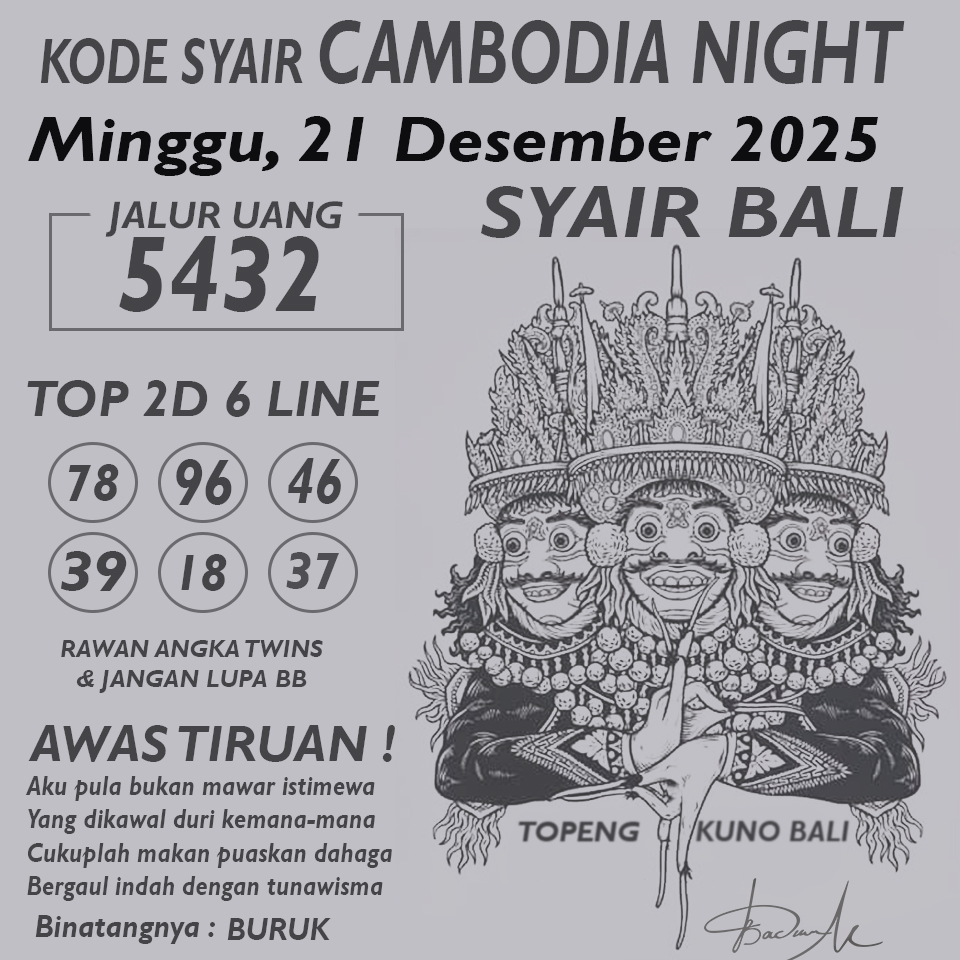 KODE SYAIR CAMBODIA NIGHT
Minggu, 21 Desember 2025
SYAIR BALI
JALUR UANG
5432
TOP 2D 6 LINE
78 96 46
39 18 37
RAWAN ANGKA TWINS
& JANGAN LUPA BB
AWAS TIRUAN !
Aku pula bukan mawar istimewa
Yang dikawal duri kemana-mana
Cukuplah makan puaskan dahaga
Bergaul indah dengan tunawisma
Binatangnya : BURUK
TOPENG KUNO BALI